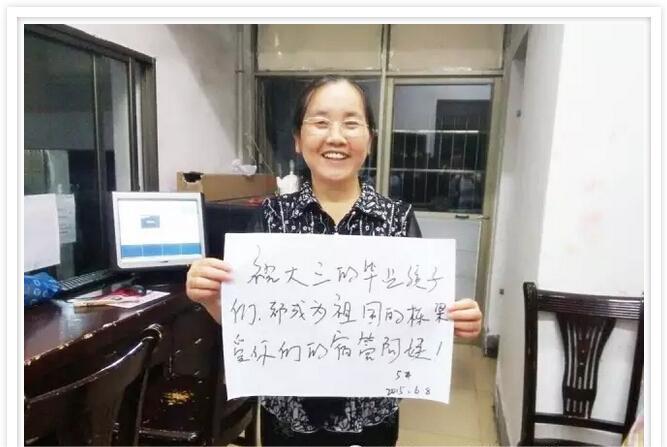 祝大三的毕业孩子
们,都成为祖国的栋梁
爱你们的宿管阿姨!
5#
2015.6.8